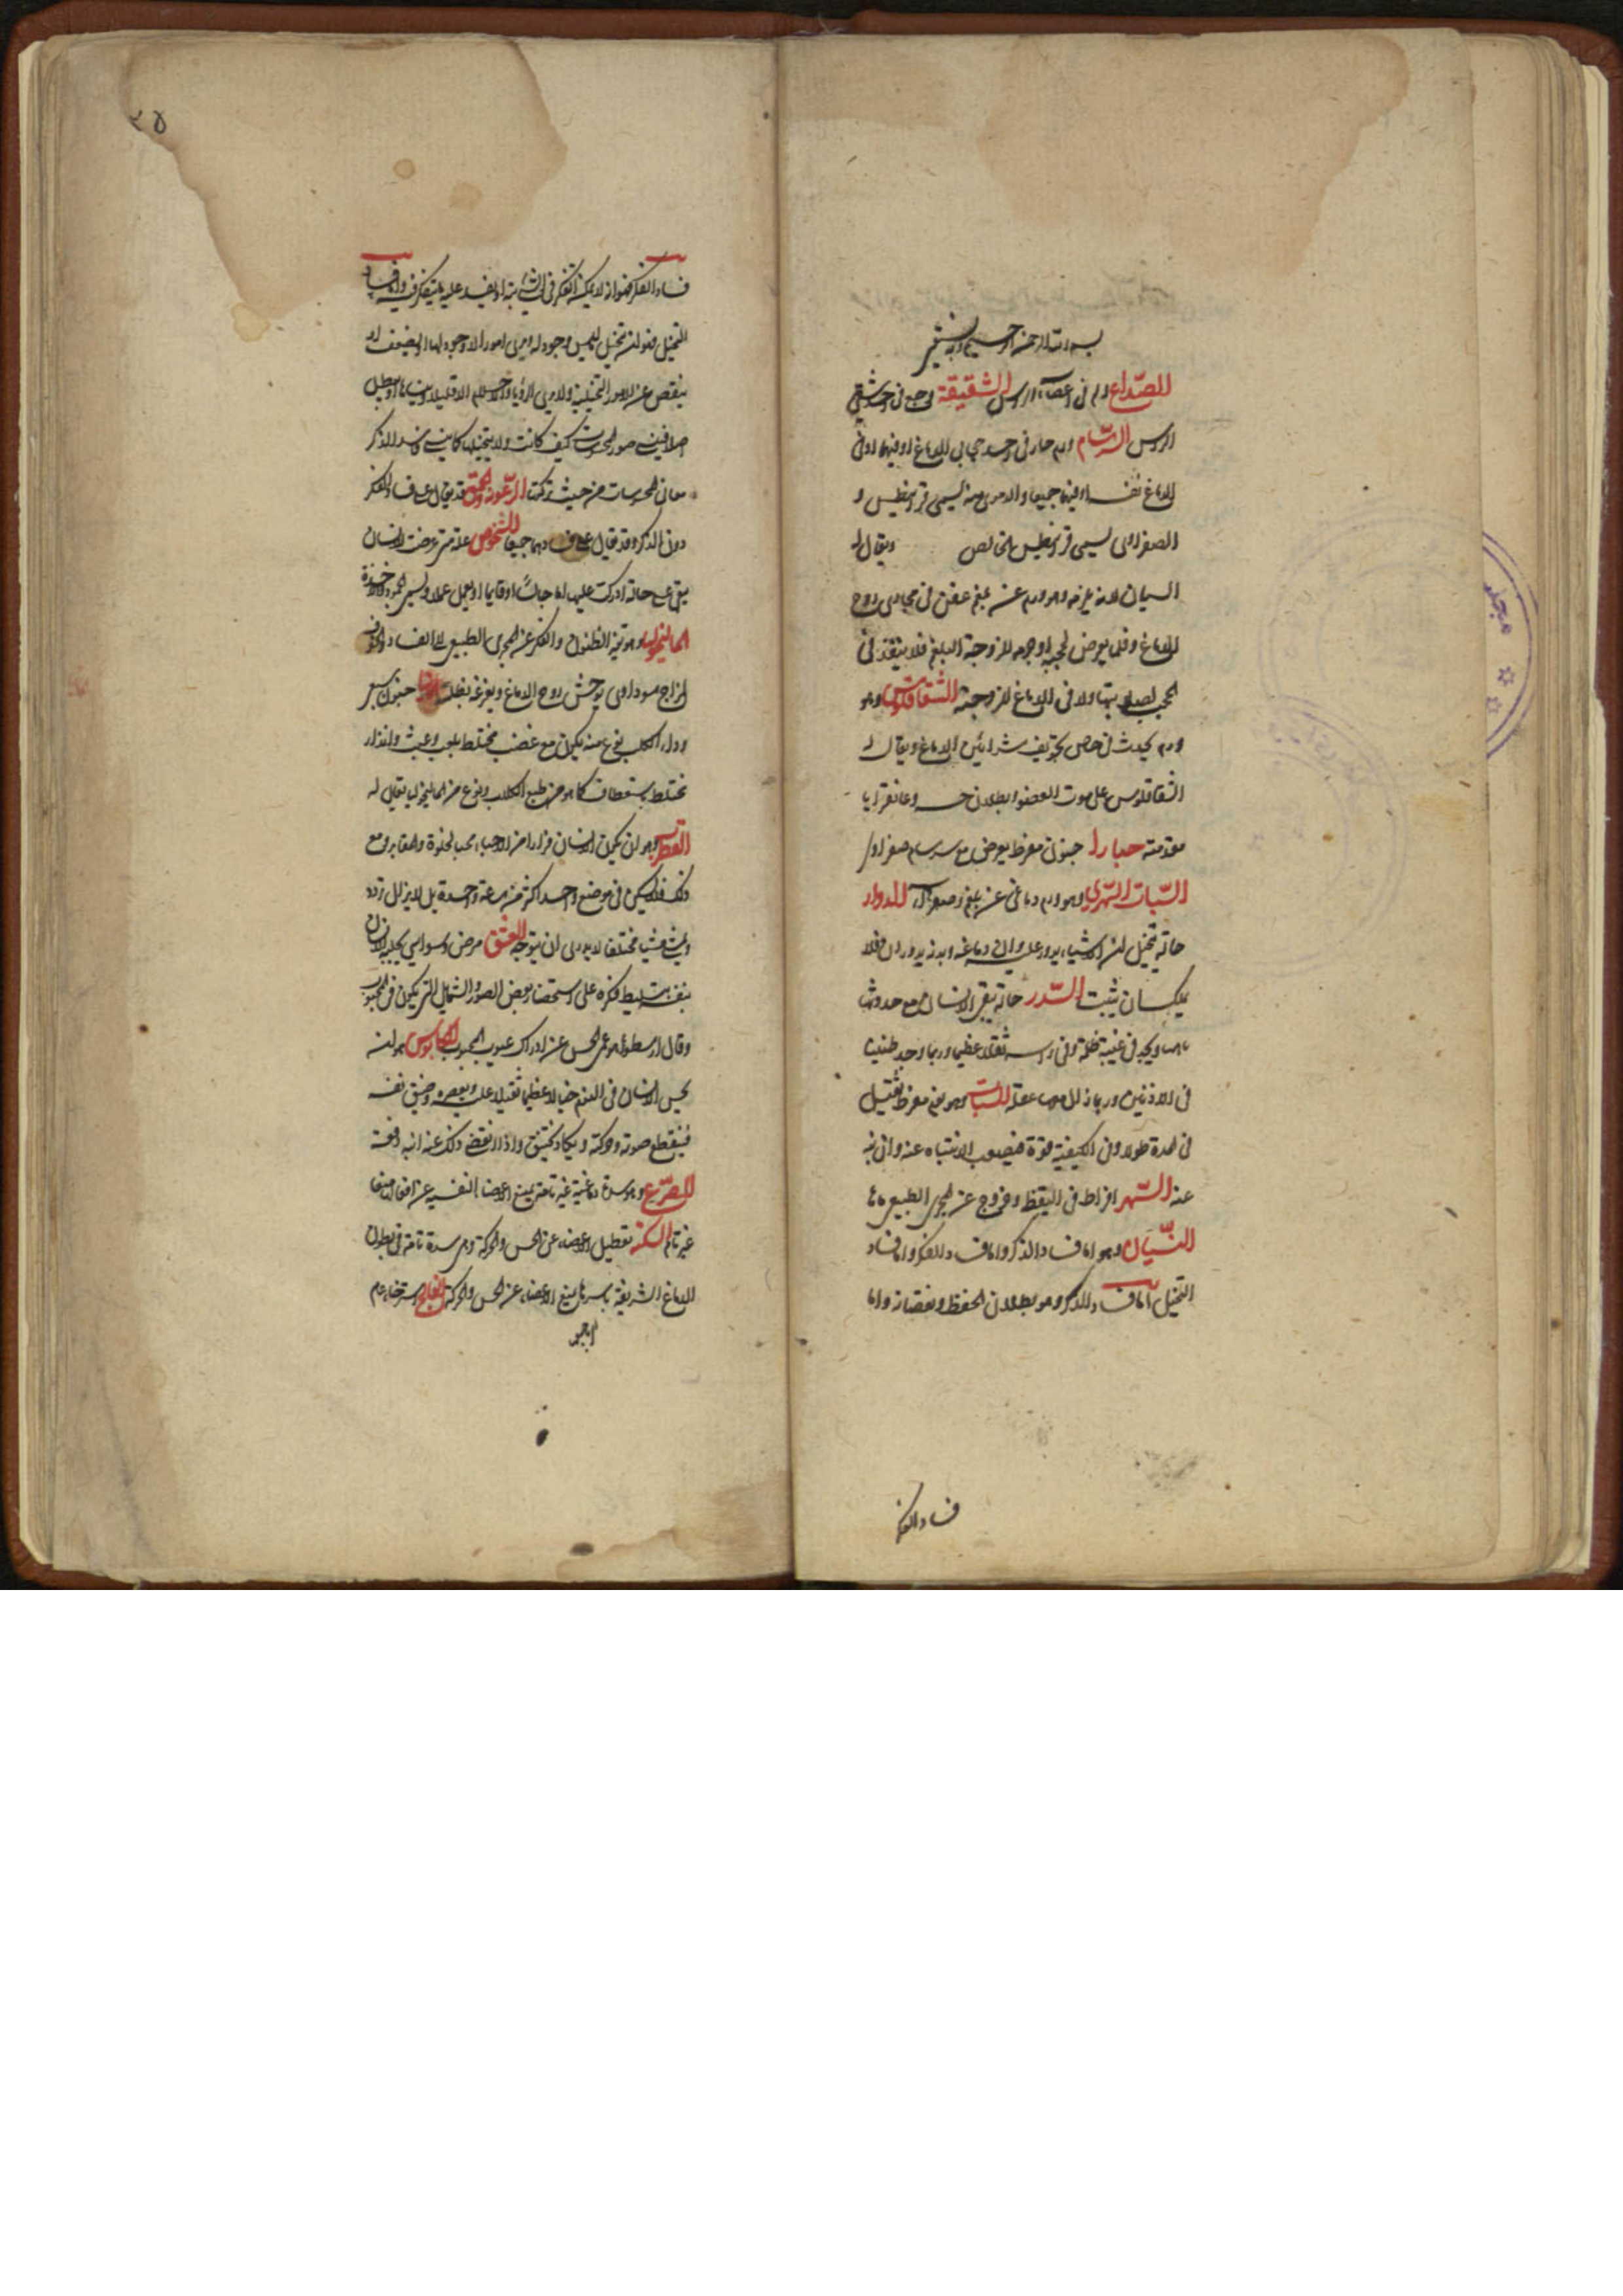 بسم الله الرحمن الرحيم وبه نستعين
الصداع الم في اعضاء الراس الشقيقة وجع في احد شقي
الراس السرسام ورم حار في احد حجابي الدماغ او فيهما او في
الدماغ نفسه او فيهما جميعا والدموي منه يسمى قرانيطس و
الصفراوي يسمى قرانيطس خالص ويقال له
النسيان لانه يلزمه وهو ورم عن بلغم عفن في مجاري روح
الدماغ وقلما يعرض لحجبه او جرمه للزوجة البلغم فلا ينفذ في
الحجب لصلابتها ولا في الدماغ للزوجته الشقاقلوس وهو
ورم يحدث في تجويف شرائين الدماغ ويقال
الشقاقلوس على موت العضو وبطلان حسه وغانغرايا
مقدمته صبارا جنون مفرط يعرض مع سرسام صفراوي
السبات السهري وهو ورم دماغي عن بلغم وصفراء الدوار
حالة يتخيل ان الاشياء يدور عليه وان دماغه وبدنه يدوران فلا
يملك ان يثبت السدر حالة يبقى الانسان مع حدوثها
باهتا ويجد في عينيه ظلمة وفي راسه ثقلا عظيما وربما وجد طنينا
في الاذنين وربما زال معها عقله السبات وهو نوم مفرط ثقيل
في المدة طولا وفي الكيفية قوة فيصعب الانتباه عنه وان نبه
عنه السهر افراط في اليقظة وخروج عن المجرى الطبيعي
النسيان وهو اما فساد الذكر واما فساد الفكر واما فساد
التخيل اما فساد الذكر وهو بطلان الحفظ ونقصانه واما
فساد الفكر
٢٥
فساد الفكر فهو ان لا يمكنه التفكر في الشيء البتة او يفسد عليه ما يتفكر فيه واما فساد
التخيل فهو انه يتخيل ما ليس وجود له ويرى امورا لا وجود لها او يضعف او
ينقص عن الامور التخيلية ولا يرى الرؤيا والاحلام الا قليلا وينساها او يبطل
اصلا فينسى صور المحسوسات كيف كانت ولا يتخيلها كما ينسى فاسد الذكر
معاني المحسوسات من حيث تركت الرعونة والحمق قد يقال على فساد الفكر
دون الذكر وقد يقال على فسادهما جميعا الشخوص علة متى عرضت للانسان
بقي على حالة ادركت عليها اما جالسا او قائما او يعمل عملا ويسمى الجمود والاخذة
الماليخوليا وهو تغير الظنون والفكر عن المجرى الطبيعي الى الفساد والخوف
لمزاج سوداوي يوحش روح الدماغ ويفزعه بظلمته المانيا جنون سبعي
وداء الكلب نوع منه يكون مع غضب مختلط بلعب وعبث وايذاء
مختلط باستعطاف كما هو من طبع الكلاب ونوع من الماليخوليا يقال له
القطرب وهو ان يكون الانسان فرارا من الاحياء محبا للخلوة والمقابر ومع
ذلك فلا يسكن في موضع واحد اكثر من ساعة واحدة بل لا يزال يتردد
ويمشي مشيا مختلفا لا يدري اين يتوجه العشق مرض وسواسي يجلبه الانسان
بنفسه بتسليط فكره على استحضار بعض الصور والشمايل التي يكون في المحبوب
وقال ارسطو هو عمى الحس عن ادراك عيوب المحبوب الكابوس هو انه
يحس الانسان في النوم خيالا عظيما ثقيلا عليه ويعصره وضيق نفسه
فينقطع صوته وحركته ويكاد يختنق واذا انقضى ذلك عنه انتبه دفعة
الصرع وهو سدة دماغية غير تامة يمنع الاعضاء النفسية عن افعالها منعا
غير تام السكتة تعطيل الاعضاء عن الحس والحركة وهي سدة تامة في بطون
الدماغ الشريفة باسرها يمنع الاعضاء عن الحس والحركة الفالج استرخاء عام